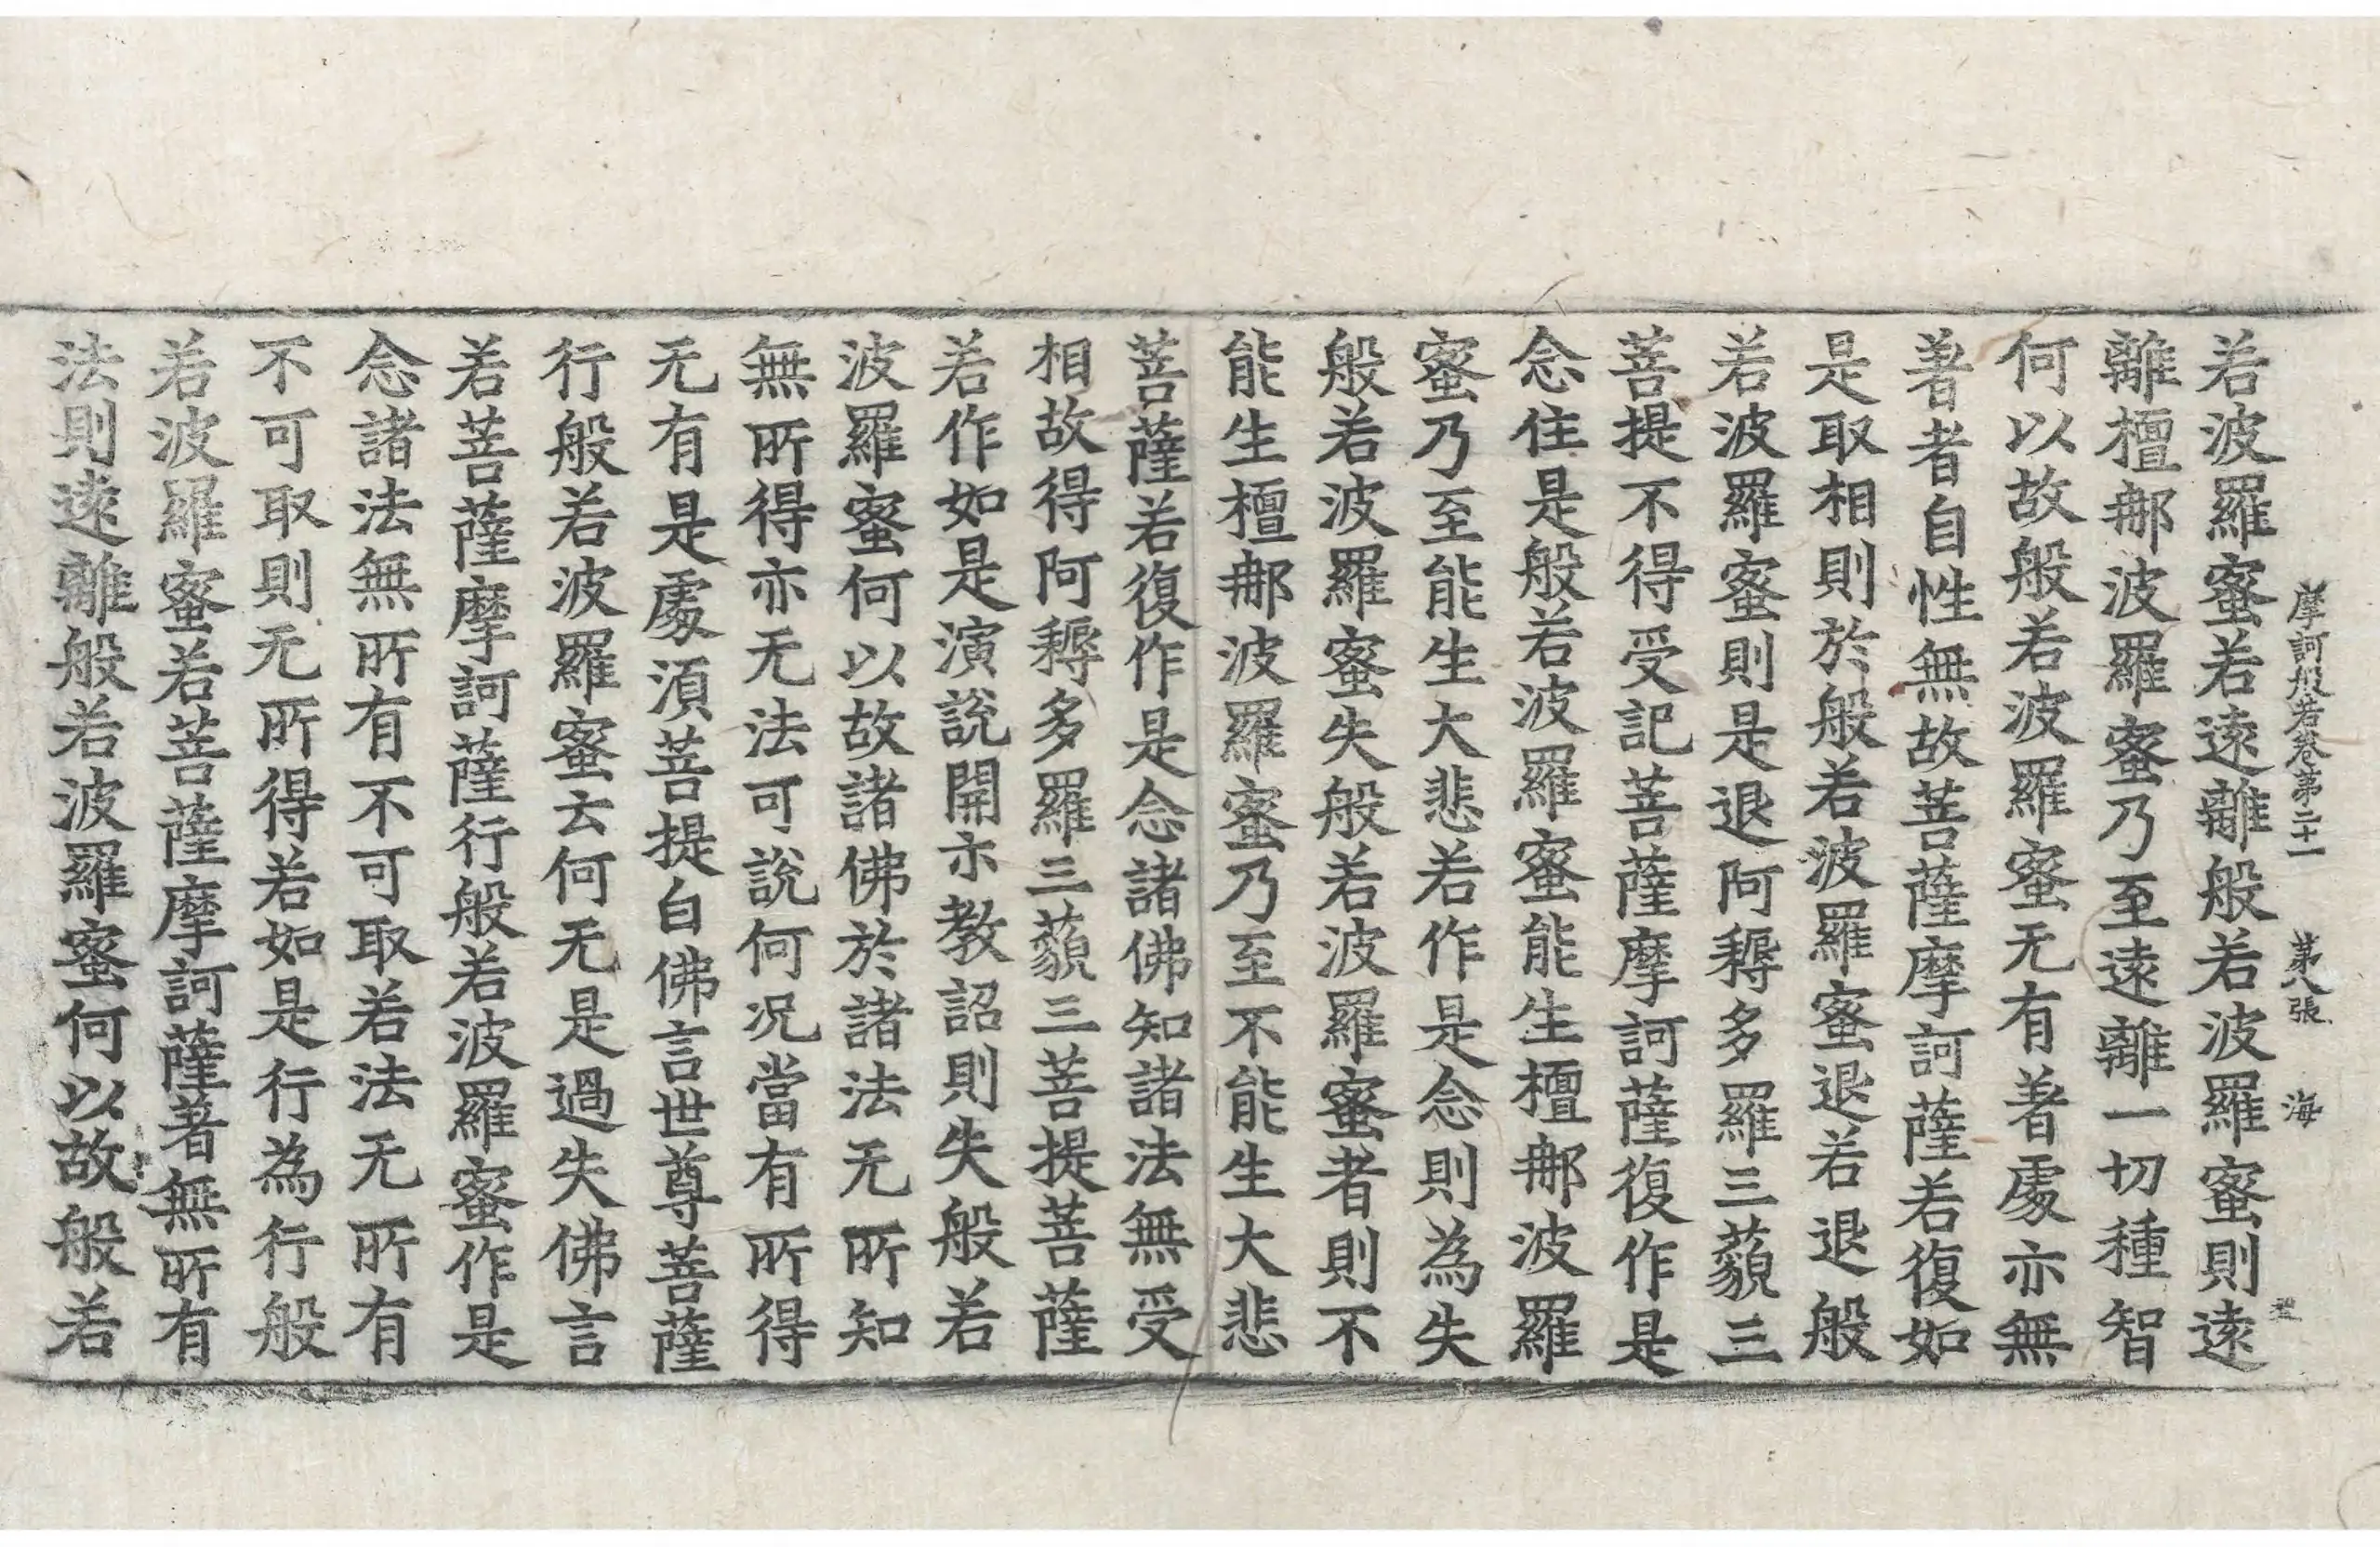 摩訶般若卷第二十一　第八張　海
若波羅蜜若遠離般若波羅蜜則遠
離檀那波羅蜜乃至遠離一切種智
何以故般若波羅蜜无有著處亦無
著者自性無故菩薩摩訶薩若復如
是取相則於般若波羅蜜退若退般
若波羅蜜則是退阿耨多羅三藐三
菩提不得受記菩薩摩訶薩復作是
念住是般若波羅蜜能生檀那波羅
蜜乃至能生大悲若作是念則為失
般若波羅蜜失般若波羅蜜者則不
能生檀那波羅蜜乃至不能生大悲
菩薩若復作是念諸佛知諸法無受
相故得阿耨多羅三藐三菩提菩薩
若作如是演說開示教詔則失般若
波羅蜜何以故諸佛於諸法无所知
無所得亦无法可說何況當有所得
无有是處須菩提白佛言世尊菩薩
行般若波羅蜜云何无是過失佛言
若菩薩摩訶薩行般若波羅蜜作是
念諸法無所有不可取若法无所有
不可取則无所得若如是行為行般
若波羅蜜若菩薩摩訶薩著無所有
法則遠離般若波羅蜜何以故般若